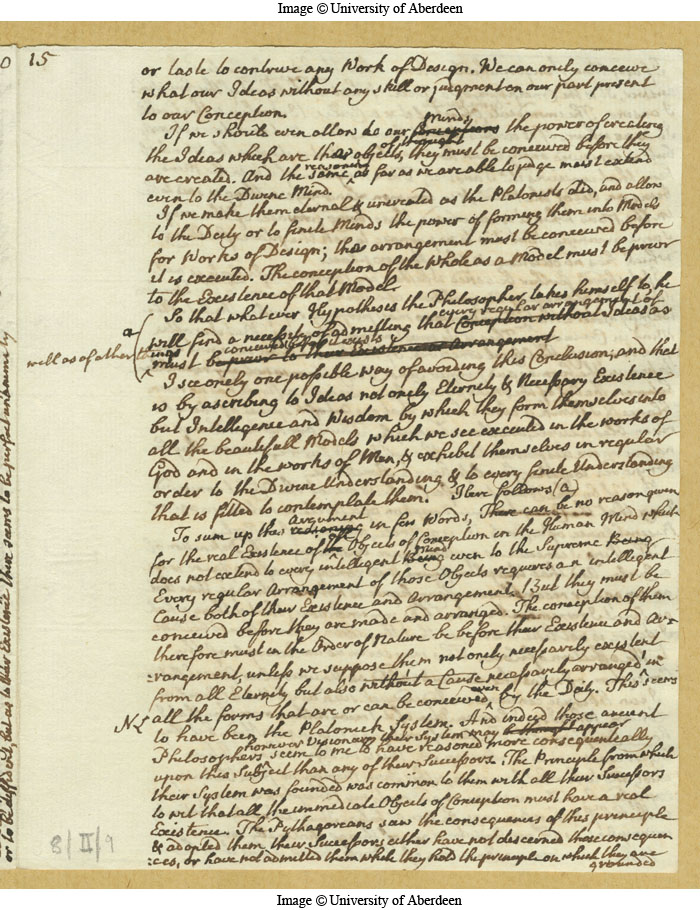 Image © University of Aberdeen
15
or taste to contrive any Work of Design. We can onely conceive
what our Ideas without any skill or judgment on our part present
to our Conception.
If we should even allow to our conceptions Minds the power of creating
the Ideas which are their objects of thought, they must be conceived before they
are created. And the same reasoning as far as we are able to judge must extend
even to the Divine Mind.
If we make them eternal & uncreated as the Platonists did, and allow
to the Deity or to finite Minds the power of forming them into Models
for Works of Design; this arrangement must be conceived before
it is executed. The conception of the Whole as a Model must be prior
to the Existence of that Model.
So that whatever Hypothesis the Philosopher takes himself to, he
will find a necessity of admitting that Conception without Ideas as every regular arrangement of
well as of other things
must be prior to their Existence Arrangement conceived before it exists
I see onely one possible way of avoiding this Conclusion; and that
is by ascribing to Ideas not onely Eternity & Necessary Existence
but Intelligence and Wisdom by which they form themselves into
all the beautifull Models which we see executed in the works of
God and in the works of Men, & exhibit themselves in regular
order to the Divine Understanding & to every finite Understanding
that is fitted to contemplate them. There follows (a)
To sum up this reasoning Argument in few Words, There can be no reason given
for the real Existence of the Objects of Conception in the Human Mind which
does not extend to every intelligent Being Mind even to the Supreme Being
Every regular Arrangement of those Objects requires an intelligent
Cause both of their Existence and Arrangement. But they must be
conceived before they are made and arranged. The conception of them
therefore must in the Order of Nature be before their Existence and Ar-
rangement, unless we suppose them not onely necessarily existent
from all Eternity but also without a Cause necessarily arranged in
all the forms that are or can be conceived, even by the Deity. This seems
to have been the Platonick System. And indeed those ancient
Philosophers however Visionary their System may be thought appear
seem to me to have reasoned more consequentially
upon this Subject than any of their Successors. The Principle from which
their System was founded was common to them with all their Successors
to wit that all the immediate Objects of Conception must have a real
Existence. The Pythagoreans saw the consequences of this principle
& adopted them, their Successors either have not descerned those consequen
:ces, or have not admitted them while they hold the principle on which they are
grounded
8/II/9
Image © University of Aberdeen